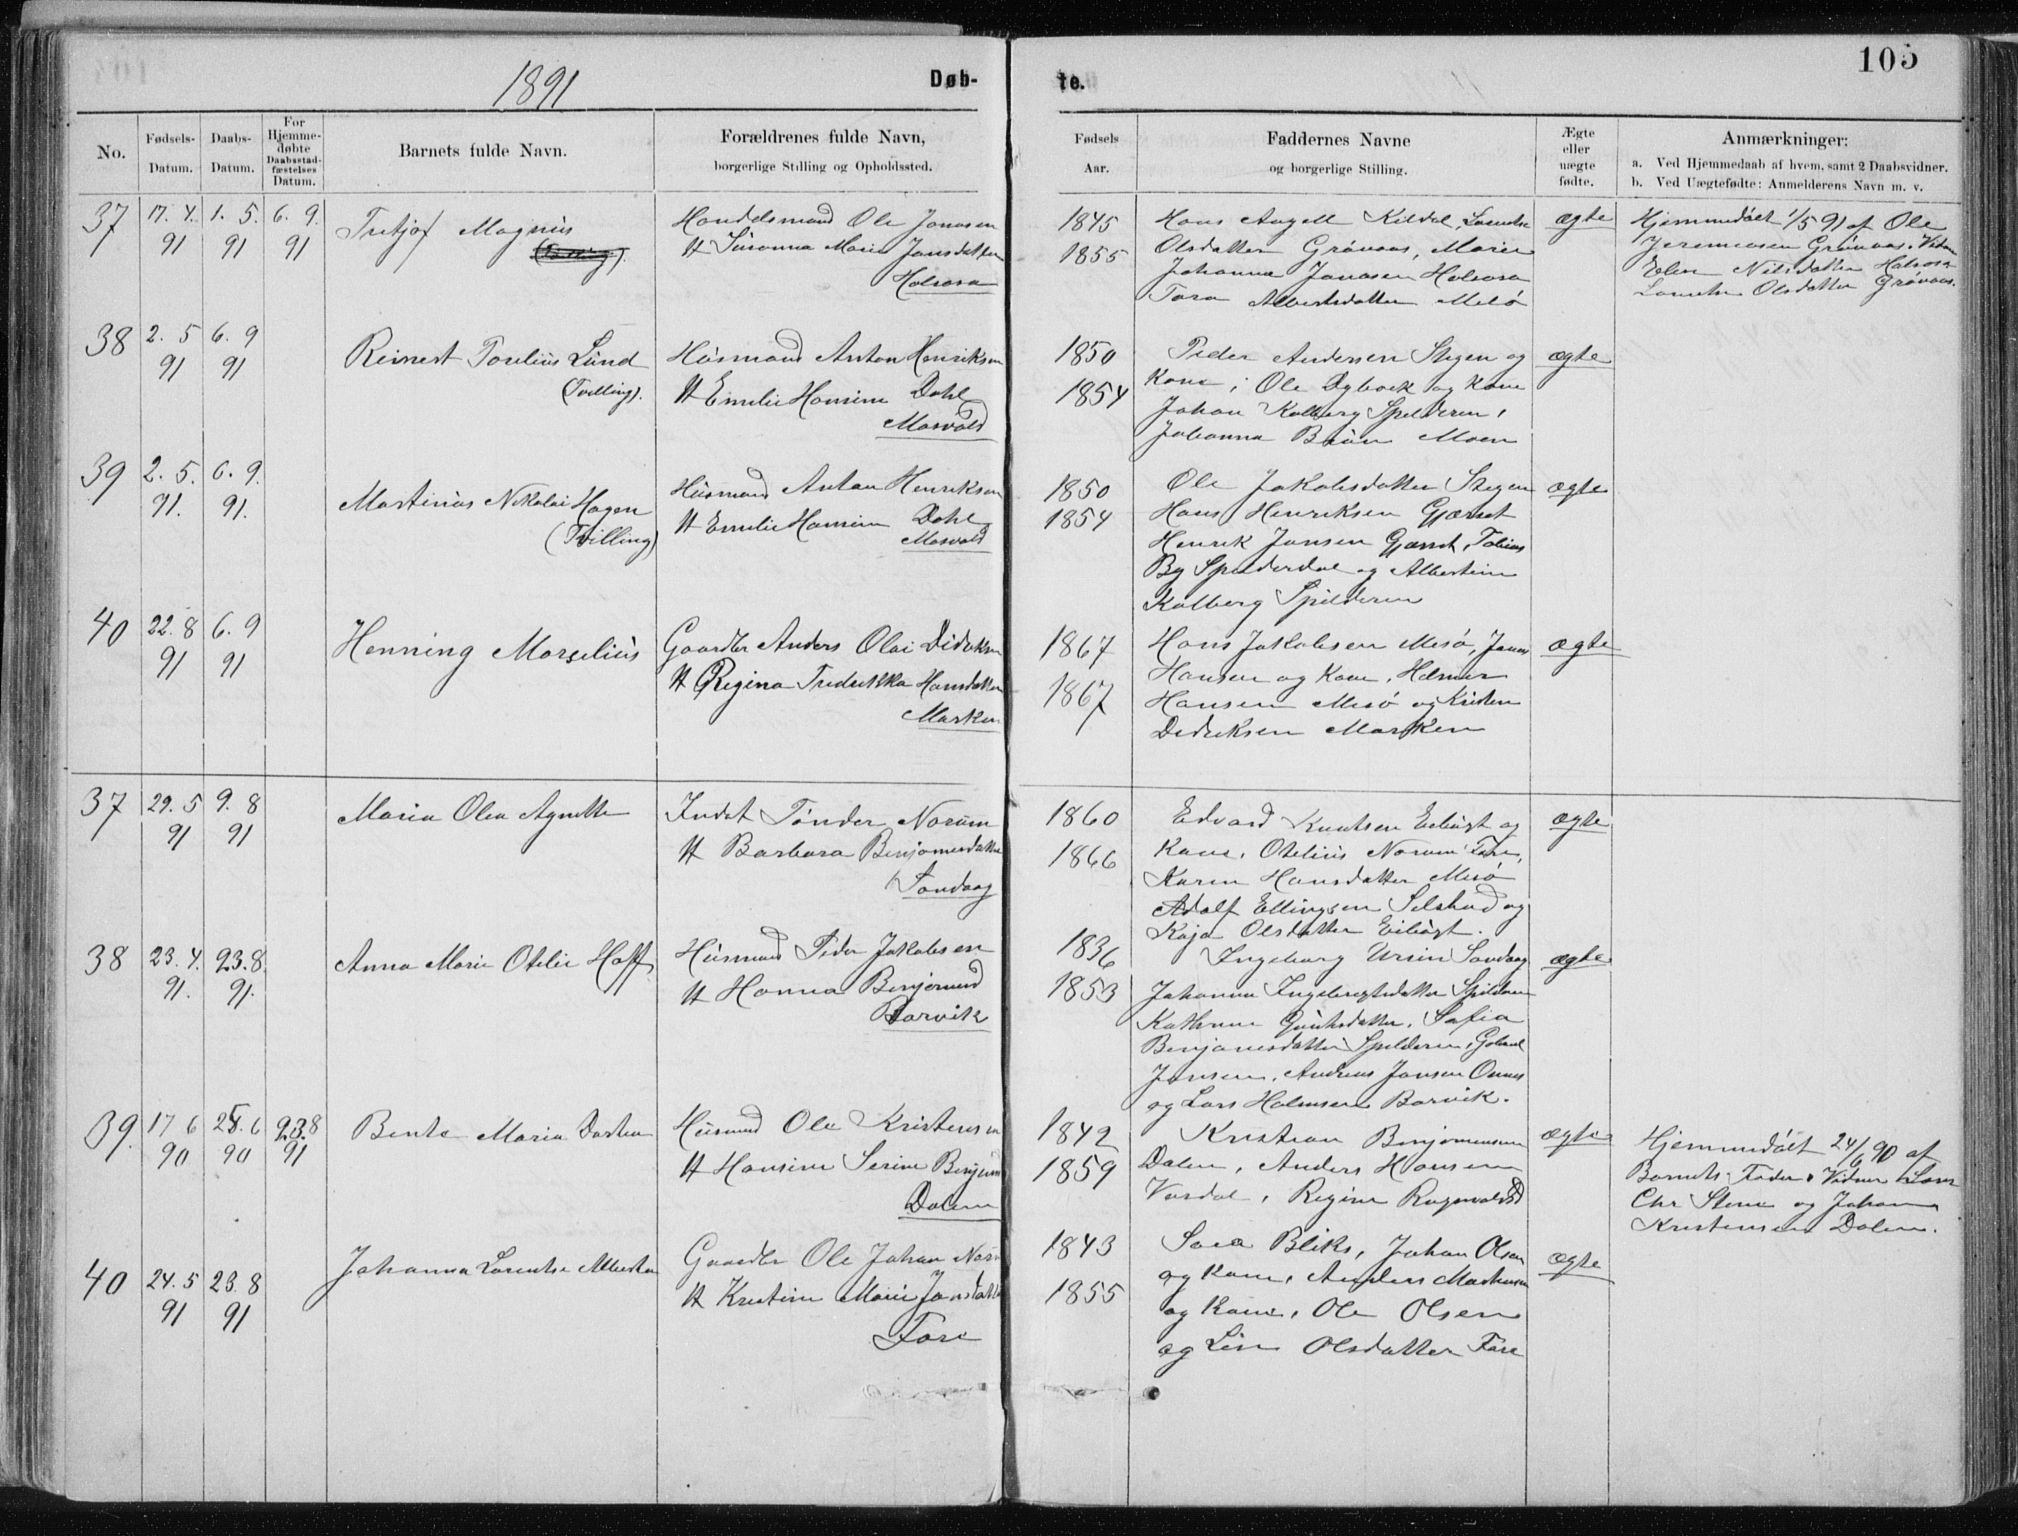 1891
Døb-
te.
105
No.
Fødsels-
Datum.
Daabs-
Datum.
For
Hjemme-
døbte
Daabsstad-
fæstelses
Datum.
Barnets fulde Navn.
Forældrenes fulde Navn,
borgerlige Stilling og Opholdssted.
Fødsels
Aar.
Faddernes Navne
og borgerlige Stilling.
Ægte
eller
uægte
fødte.
Anmærkninger:
a. Ved Hjemmedaab af hvem, samt 2 Daabsvidner.
b. Ved Uægtefødte: Anmelderens Navn m. v.
37
17. 4.
91
1. 5.
91
6. 9.
91
Magnus
Ole Jonasen
Susanna Marie Jansdatter
1845
1855
Hans Angell Kildal,
Olsdatter Grønaas, Marie
Johanna Jonasen
Albertsdatter Mesø
ægte
Hjemmedøbt 1/5 91 af Ole
Jeremiasen Grønaas.
Nilsdatter
Olsdatter Grønaas.
38
2. 5
91
6. 9
91
Reinert Torelius Lund
(Tvilling).
Husmand Anton Henriksen
H Emelie Hansine Dahl
Mosvold
1850
1854
Peder Andersen Stegen og
Kone; Ole og Kone
Johan Kolberg Spilderen,
Johanna Moen
ægte
39
2. 5.
91.
6. 9.
91.
Martinus Nikolai Hagen
(Tvilling)
Husmand Anton Henriksen
H Emelie Hansine Dahl
Mosvold
1850
1854
Ole Jakobsdatter Stegen
Hans Henriksen Gjærset
Henrik Jansen Gjærset, Tobias
By Spilderdal og Albertine
Kolberg Spilderen
ægte
40
22. 8
91
6. 9
91
Henning Marselius
Gaardbr Anders Olai Didriksen
H Regina Fredrikka Hansdatter
Marken
1867
1867
Hans Jakobsen Mesø, Jonas
Hansen og Kone, Helmer
Hansen Mesø og Kristen
Dedriksen Marken
ægte
37
29. 5
91
9. 8
91
Maria Olea Agnette
Indst Tønder Norum
H Barbara Benjamensdatter
Sandaag
1860
1866
Edvard Knutsen og
Kone, Otelius Norum Fore,
Karen Hansdatter Mesø
Adolf Ellingsen Selstad og
Kaja Olsdatter
ægte
38
23. 4.
91.
23. 8.
91.
Anna Marie Otelie Hoff
Husmand Peder Jakobsen
H Hanna Benjamind
Barvik
1836
1853
Ingeborg Ursin Sandaag
Johanna Ingebrigtsdatter Spilderen
Sofia
Benjamensdatter Spilderen,
Jansen, Andreas Jansen
og Lars Halmsen Barvik.
ægte
39.
17 6
90
25. 6
90
23. 8
91
Bente Maria
Husmand Ole Kristensen
H Hansine Serine
Dalen
1842
1859
Kristian Benjamensen
Dalen, Anders Hansen
Vasdal, Regine
ægte
Hjemmedøbt 24/6 90 af
Barnets Fader. Vidner
Chr Stene og Johan
Kristensen Dalen.
40
24. 5
91
23. 8
91
Johanna Lorentse Alberta
Gaardbr Ole Johan
H Kristine Marie Jansdatter
Fore
1843
1855
Sara Bliks, Johan Olsen
og Kone, Anders
og Kone, Ole Olsen
og Olsdatter Fore
ægte